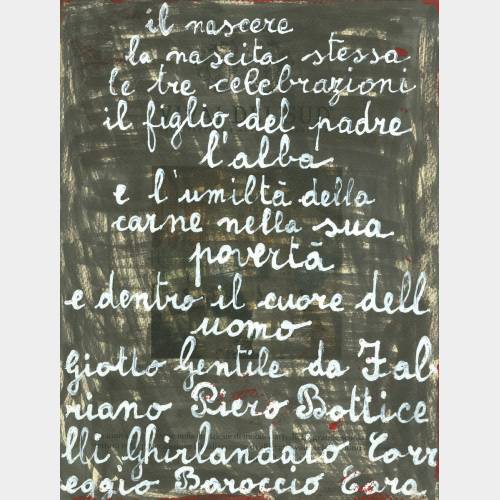 il nascere
la nascita stessa
le tre celebrazioni
il figlio del padre
l'alba
e l'umiltà della
carne nella sua
povertà
e dentro il cuore dell
uomo
Giotto Gentile da Fab
riano Piero Bottice
lli Ghirlandaio Corr
eggio Baroccio Cara